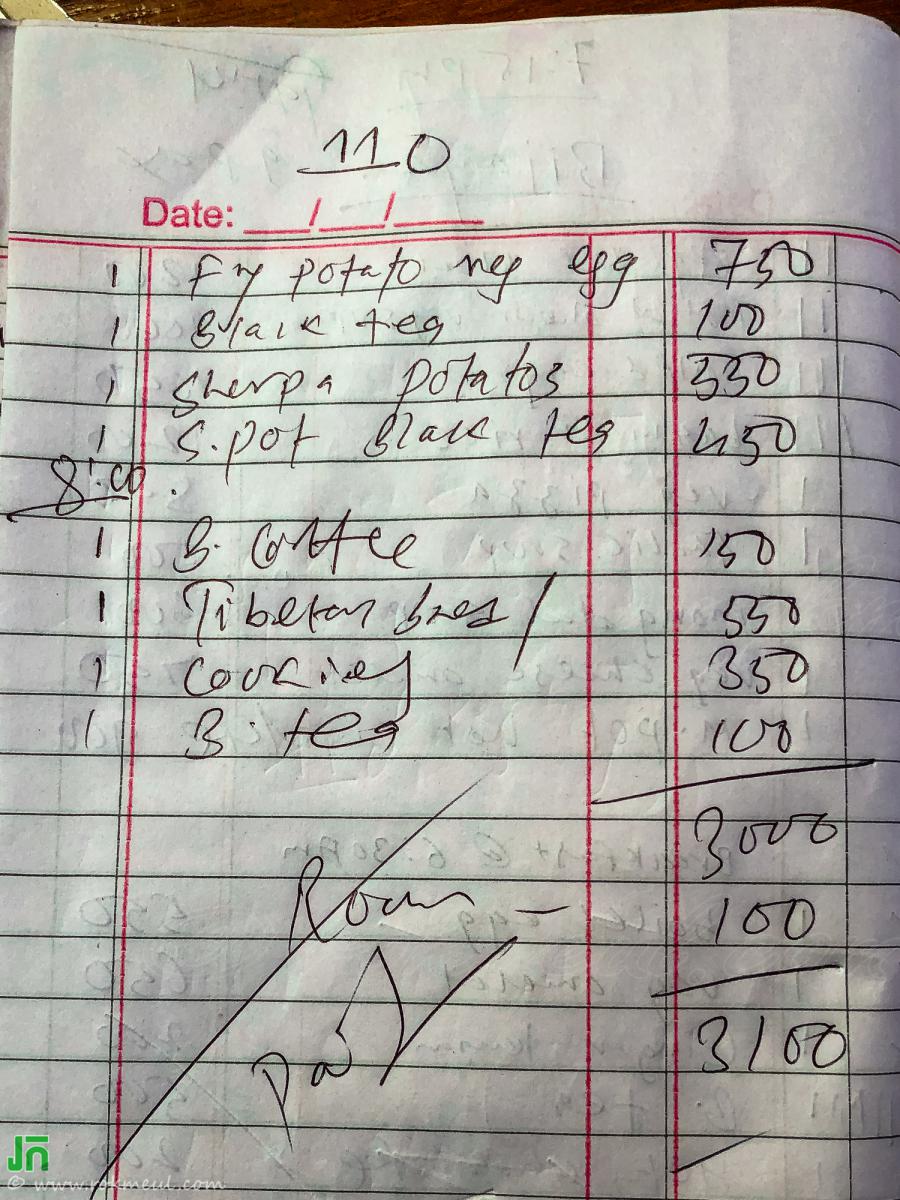 110
Date: __/__/____
1 Fry potato veg egg 750
1 Black tea 100
1 Sherpa potatos 550
1 S.pot Black tea 450
8:00
1 B. coffee 150
1 Tibetan bread 550
1 Cookies 350
1 B. tea 100
3000
Room — 100
Paid
3100
Jn
© www.rokmeul.com